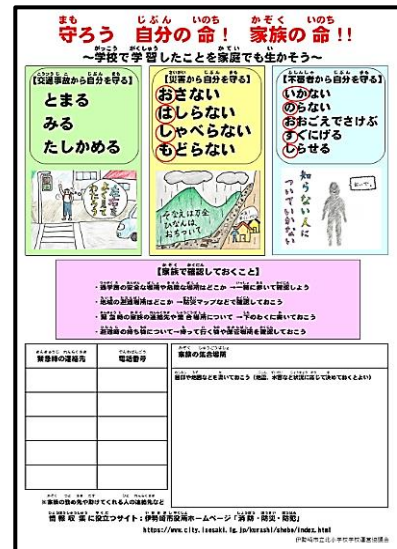 守ろう 自分の命! 家族の命!!
～学校で学習したことを家庭でも生かそう～
【交通事故から自分を守る】
とまる
みる
たしかめる
【災害から自分を守る】
おさない
はしらない
しゃべらない
もどらない
【不審者から自分を守る】
いかない
のらない
おおごえでさけぶ
すぐにげる
しらせる
そなえは万全
ひなんは
おちついて
知らない人に
ついていかない
【家族で確認しておくこと】
・通学路の安全な場所や危険な場所はどこか →一緒に歩いて確認しよう
・地域の避難場所はどこか →防災マップなどで確認しておこう
・緊急時の家族の連絡先や集合場所について →下のわくに書いておこう
・避難時の持ち物について→持って行く物や保管場所を確認しておこう
緊急時の連絡先
電話番号
家族の集合場所
※家族の勤め先や助けてくれる人の連絡先など
情報収集に役立つサイト:伊勢崎市役所ホームページ「消防・防災・防犯」
https://www.city.isesaki.lg.jp/kurashi/shobo/index.html
伊勢崎市立北小学校学校運営協議会